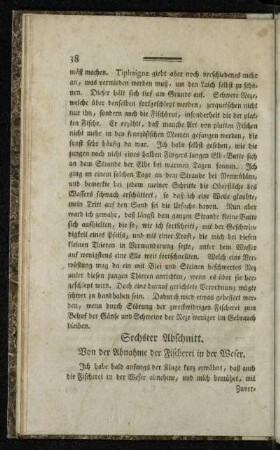 38
mäß machen. Tiphaigne giebt aber noch verschiedenes mehr
an, was vermieden werden muß, um den Laich selbst zu scho-
nen. Dieser hält sich tief am Grunde auf. Schwere Neze,
welche über denselben fortgeschlept werden, zerquetschen nicht
nur ihn, sondern auch die Fischbrut, insonderheit die der plat-
ten Fische. Er erzählt, daß manche Art von platten Fischen
nicht mehr in den französischen Meeren gefangen werden, die
sonst sehr häufig da war. Ich habe selbst gesehen, wie die
jungen noch nicht eines halben Fingers langen Elb-Butte sich
an dem Strande der Elbe bei warmen Tagen sonnen. Ich
ging an einem solchen Tage an dem Strande bei
und bemerkte bei jedem meiner Schritte die Oberfläche des
Wassers schwach erschüttert, so daß ich eine Welle glaubte,
mein Tritt auf den Sand sei die Ursache davon. Nun aber
ward ich gewahr, daß längst dem ganzen Strande kleine Butte
sich aufhielten, die so, wie ich fortschritt, mit der Geschwin-
digkeit eines Pfeils, und mit einer Kraft, die mich bei diesen
kleinen Thieren in Verwunderung sezte, unter dem Wasser
auf wenigstens eine Elle weit fortschnellten. Welch eine Ver-
wüstung mag da ein mit Blei und Steinen beschwertes Nez
unter diesen jungen Thieren anrichten, wenn es über sie her-
geschlept wird. Doch eine daraus gerichtete Verordnung mögte
schwer zu handhaben sein. Dadurch wird etwas gebessert wer-
den, wenn durch Störung der zweckwidrigen Fischerei zum
Behuf der Gänse und Schweine der Neze weniger im Gebrauch
bleiben.
Sechster Abschnitt.
Von der Abnahme der Fischerei in der Weser.
Ich habe bald anfangs der Klage kurz erwähnt, daß auch
die Fischerei in der Weser abnehme, und mich bemühet, mit
Zuver-